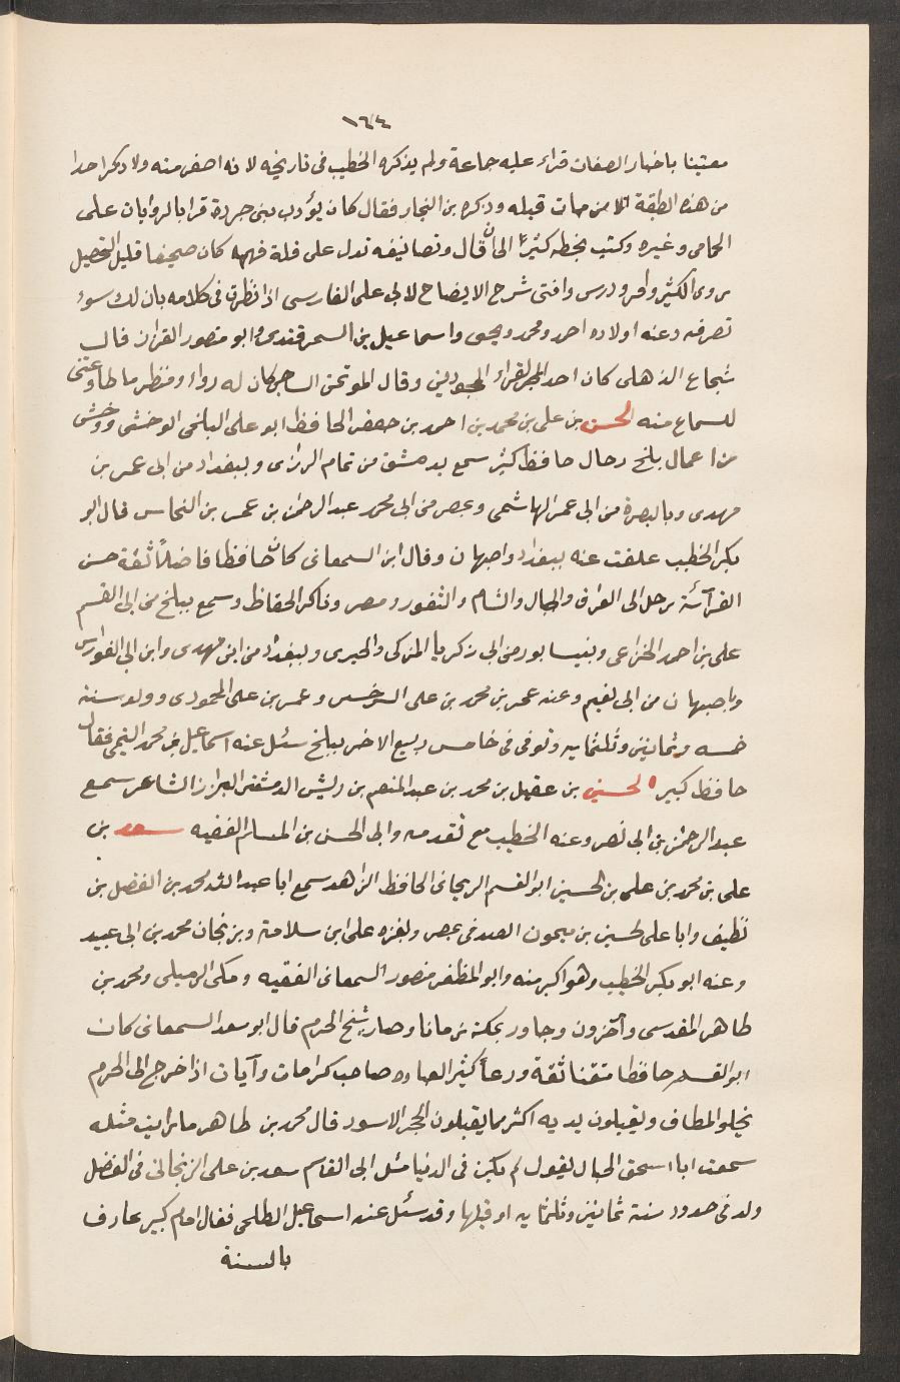 ١٦٤
معتينا باخبار الصفات قراء عليه جماعة ولم يذكره الخطيب فى تاريخه لانه اصغر منه ولا ذكر احدا
من هذه الطبقة الا من مات قبله وذكره بن النجار فقال كان يؤدب ببنى جردة قرا بالروايات على
الحمامى وغيره وكتب بخطه كثيرًا الى ان قال وتصانيفه تدل على قلة فهمه كان صحيفا قليل التحصيل
يروى الكثير واقرو ودرس وافتى شرح الايضاح لابى على الفارسى اذا نظرت فى كلامه بان لك سوء
تصرفه وعنه اولاده احمد ومحمد ويحيى واسماعيل بن السمرقندى وابو منصور القزاز قال
شجاع الذهلى كان احد القراء المجودين وقال الموتمن الساجى كان له رواء ومنظر ما طاوعتنى
للسماع منه الحسن بن على بن محمد بن احمد بن جعفر الحافظ ابو على البلخى الوخشى ووخش
من اعمال بلخ رحال حافظ كثير سمع بدمشق من تمام الرازى وببغداد من ابى عمر بن
مهدى وبالبصرة من ابى عمر الهاشمى وبمصر من ابى محمد عبد الرحمن بن عمر بن النحاس قال ابو
بكر الخطيب علقت عنه ببغداد واصبهان وقال ابن السمعانى كان حافظا فاضلاً ثقة حسن
القرآئة رحل الى العراق والجبال والشام والثغور ومصر وذاكر الحفاظ وسمع ببلخ من ابى القسم
على بن احمد الخزاعى وبنيسابور من ابى زكريا المزكى والحيرى وببغداد من ابن مهدى وابن ابى الفوارس
وباصبهان من ابى نعيم وعنه عمر بن محمد بن على السرخسى وعمر بن على المحمودى وولد سنة
خمسه وثمانين وثلثمايه وتوفى فى خامس ربيع الاخر ببلخ سئل عنه اسماعيل بن محمد التيمى فقال
حافظ كبير الحسين بن عقيل بن محمد بن عبد المنعم بن ريش الدمشقى البزاز الشاعر سمع
عبد الرحمن بن ابى نصر وعنه الخطيب مع تقدمه وابى الحسن بن المسلم الفقيه سعد بن
على بن محمد بن على بن الحسين ابو القسم الريحانى الحافظ الزاهد سمع ابا عبد الله محمد بن الفضل بن
نظيف وابا على الحسين بن ميمون الصدفى بمصر وبغزه على ابن سلامة وبزنجان محمد بن ابى عبيد
وعنه ابو بكر الخطيب وهو اكبر منه وابو المظفر منصور السمعانى الفقيه ومكى الرميلى ومحمد بن
طاهر المقدسى وآخرون وجاور بمكة زمانا وصار شيخ الحرم قال ابو سعد السمعانى كان
ابو القسم حافظا متقنا ثقة ورعاً كثير العباده صاحب كرامات وآيات اذا خرج الى الحرم
يخلو المطاف ويقبلون يديه اكثر مما يقبلون الحجر الاسود قال محمد بن طاهر ما رايت مثله
سمعت ابا اسحق الحبال يقول لم يكن فى الدنيا مثل ابى القاسم سعد بن على الزنجانى فى الفضل
ولد فى حدود سنة ثمانين وثلثمايه او قبلها وقد سئل عنه اسماعيل الطلحى فقال امام كبير عارف
بالسنة